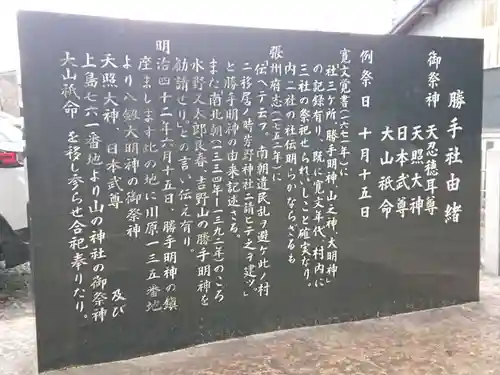 勝手社由緒
御祭神 天忍穂耳尊
天照大神
日本武尊
大山祇命
例祭日 十月十五日
寛文覚書(一六七一年)に
「社三ケ所、勝手明神、山之神、大明神」
の記録有り、既に寛文年代、村内に
三社の祭祀せられいしこと確実なり。
内二社の社伝明らかならざるも
張州府志(一七五二年)に
「伝ヘテ云フ、南朝遺民乱ヲ避ケ此ノ村
ニ移居ノ時芳野神社ニ請ヒテ之ヲ建ツ。」
と勝手明神の由来記述さる。
また南北朝(一三三四年ー一三九二年)のころ
水野又太郎良春、吉野山の勝手明神を
勧請せり」との言い伝え有り。
明治四十二年六月十五日、勝手明神の鎮
座まします此の地に川原一三五番地
より八劔大明神の御祭神
天照大神、日本武尊 及び
上島七六一番地より山の神社の御祭神
大山祇命 を移し参らせ合祀奉りたり。